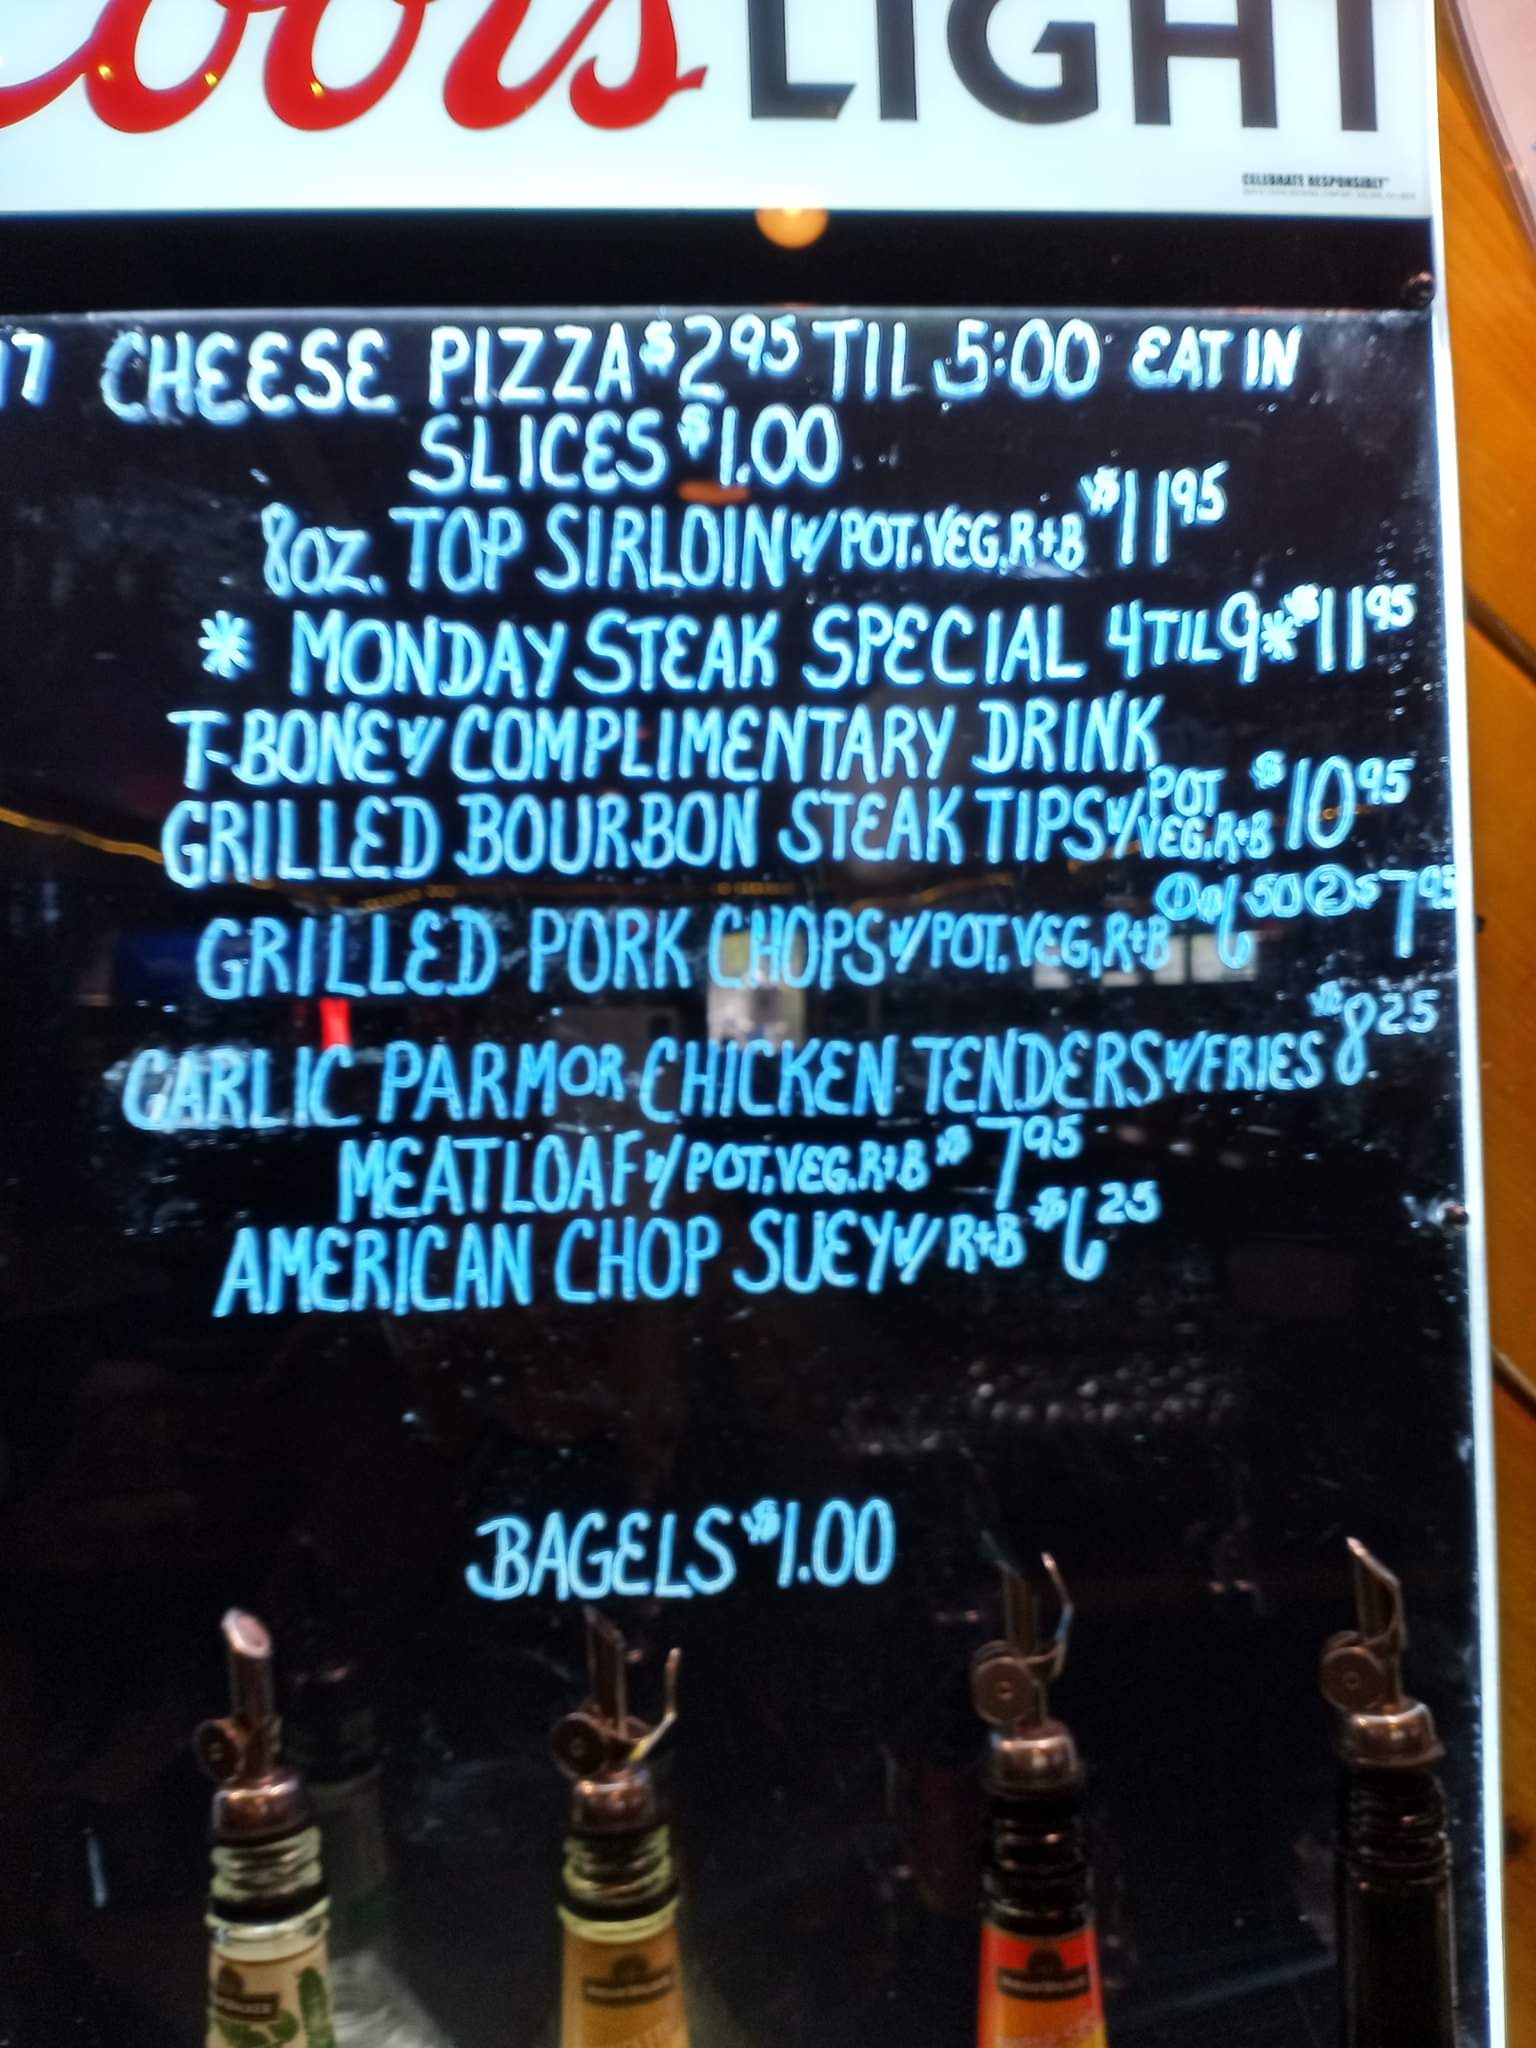 Coors LIGHT
CELEBRATE RESPONSIBLY
17 CHEESE PIZZA $2.95 TIL 5:00 EAT IN
SLICES $1.00
8OZ. TOP SIRLOIN W/ POT. VEG, R+B $11 95
* MONDAY STEAK SPECIAL 4 TIL 9 * $11 95
T-BONE W/ COMPLIMENTARY DRINK
GRILLED BOURBON STEAK TIPS W/ POT VEG, R+B $10 95
GRILLED PORK CHOPS W/ POT. VEG, R+B ① $6 50 ② $7 95
GARLIC PARM OR CHICKEN TENDERS W/ FRIES $8 25
MEATLOAF W/ POT. VEG. R+B $7 95
AMERICAN CHOP SUEY W/ R+B $6 25
BAGELS $1.00